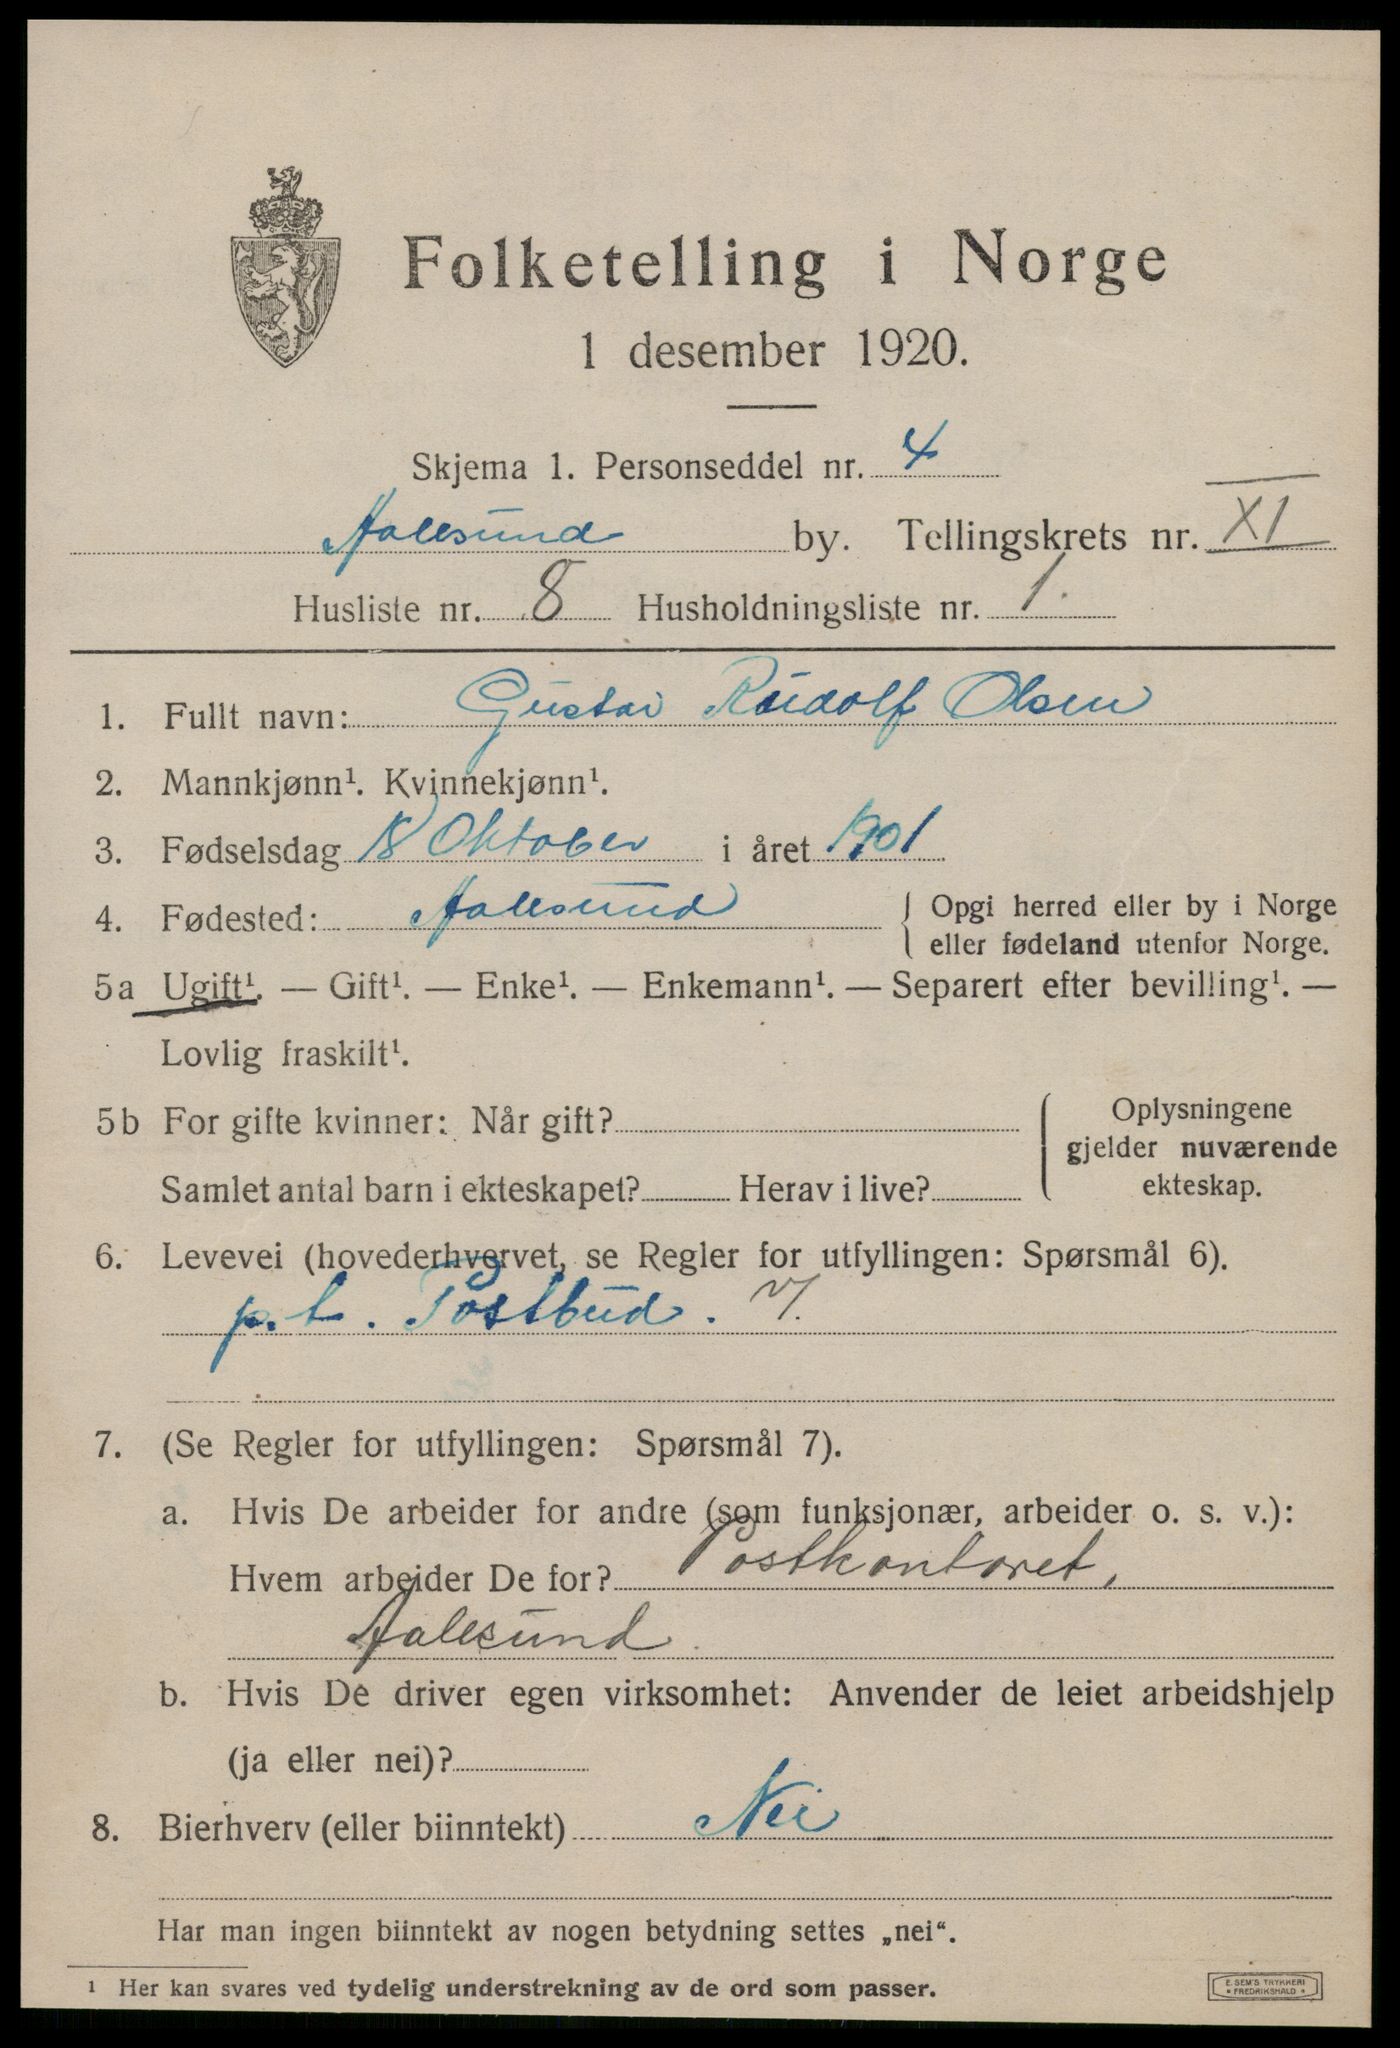 Folketelling i Norge
1 desember 1920.
Skjema 1. Personseddel nr. 4
Aalesund by. Tellingskrets nr. XI
Husliste nr. 8 Husholdningsliste nr. 1.
1. Fullt navn: Gustav Rudolf Olsen
2. Mannkjønn¹. Kvinnekjønn¹.
3. Fødselsdag 18 Oktober i året 1901
4. Fødested: Aalesund { Opgi herred eller by i Norge
eller fødeland utenfor Norge.
5a Ugift¹. — Gift¹. — Enke¹. — Enkemann¹. — Separert efter bevilling¹. —
Lovlig fraskilt¹.
5b For gifte kvinner: Når gift? { Oplysningene
gjelder nuværende
Samlet antal barn i ekteskapet? Herav i live? ekteskap.
6. Levevei (hovederhvervet, se Regler for utfyllingen: Spørsmål 6).
p.t. Postbud.
7. (Se Regler for utfyllingen: Spørsmål 7).
a. Hvis De arbeider for andre (som funksjonær, arbeider o. s. v.):
Hvem arbeider De for? Postkontoret,
Aalesund.
b. Hvis De driver egen virksomhet: Anvender de leiet arbeidshjelp
(ja eller nei)?
8. Bierhverv (eller biinntekt) Nei
Har man ingen biinntekt av nogen betydning settes „nei“.
¹ Her kan svares ved tydelig understrekning av de ord som passer.
E. SEM'S TRYKKERI
* FREDRIKSHALD *